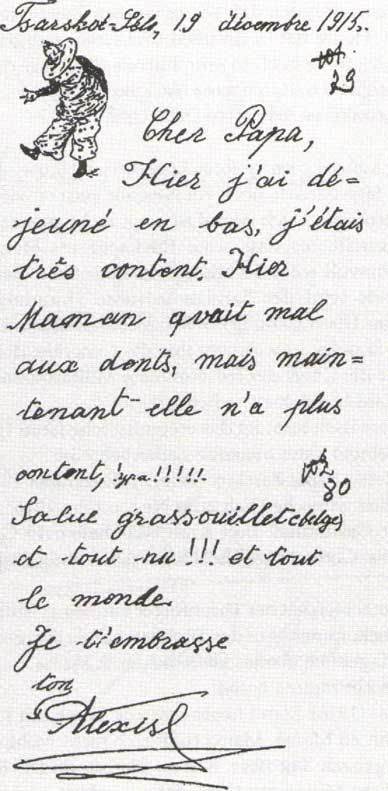 Tsarskoë-Sélo, 19 décembre 1915.
29
Cher Papa,
Hier j'ai dé=
jeuné en bas, j'étais
très content. Hier
Maman avait mal
aux dents, mais main=
tenant elle n'a plus
content, !!!!!!
30
Salue grassouillet
et tout nu!!! et tout
le monde.
Je t'embrasse
ton
Alexis